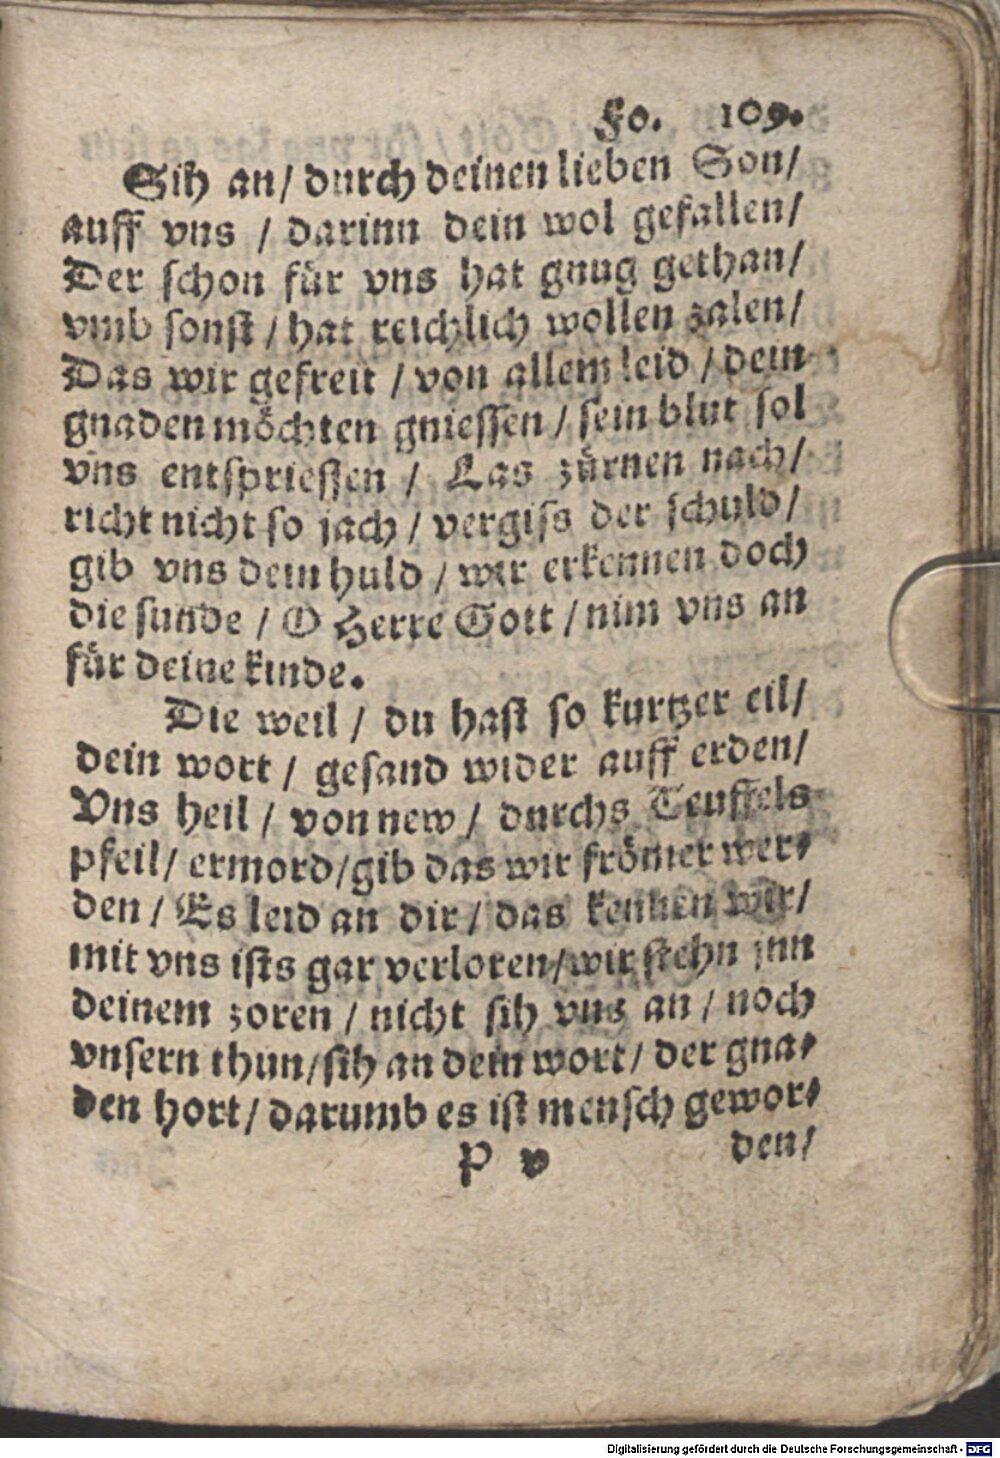 Fo. 109.
Sih an / durch deinen lieben Son /
auff vns / darinn dein wol gefallen /
Der schon für vns hat gnug gethan /
vmb sonst / hat reichlich wollen zalen /
Das wir gefreit / von allem leid / dein
gnaden möchten gniessen / sein blut sol
vns entspriessen / Las zürnen nach /
richt nicht so jach / vergiss der schuld /
gib vns dein huld / wir erkennen doch
die sunde / O Herre Gott / nim vns an
für deine kinde.
Die weil / du hast so kurtzer eil /
dein wort / gesand wider auff erden /
Vns heil / von new / durchs Teuffels
pfeil / ermord / gib das wir frömer wer⸗
den / Es leid an dir / das kennen wir /
mit vns ists gar verloren / wir stehn jnn
deinem zoren / nicht sih vns an / noch
vnsern thun / sih an dein wort / der gna⸗
den hort / darumb es ist mensch gewor⸗
P v den /
Digitalisierung gefördert durch die Deutsche Forschungsgemeinschaft - DFG